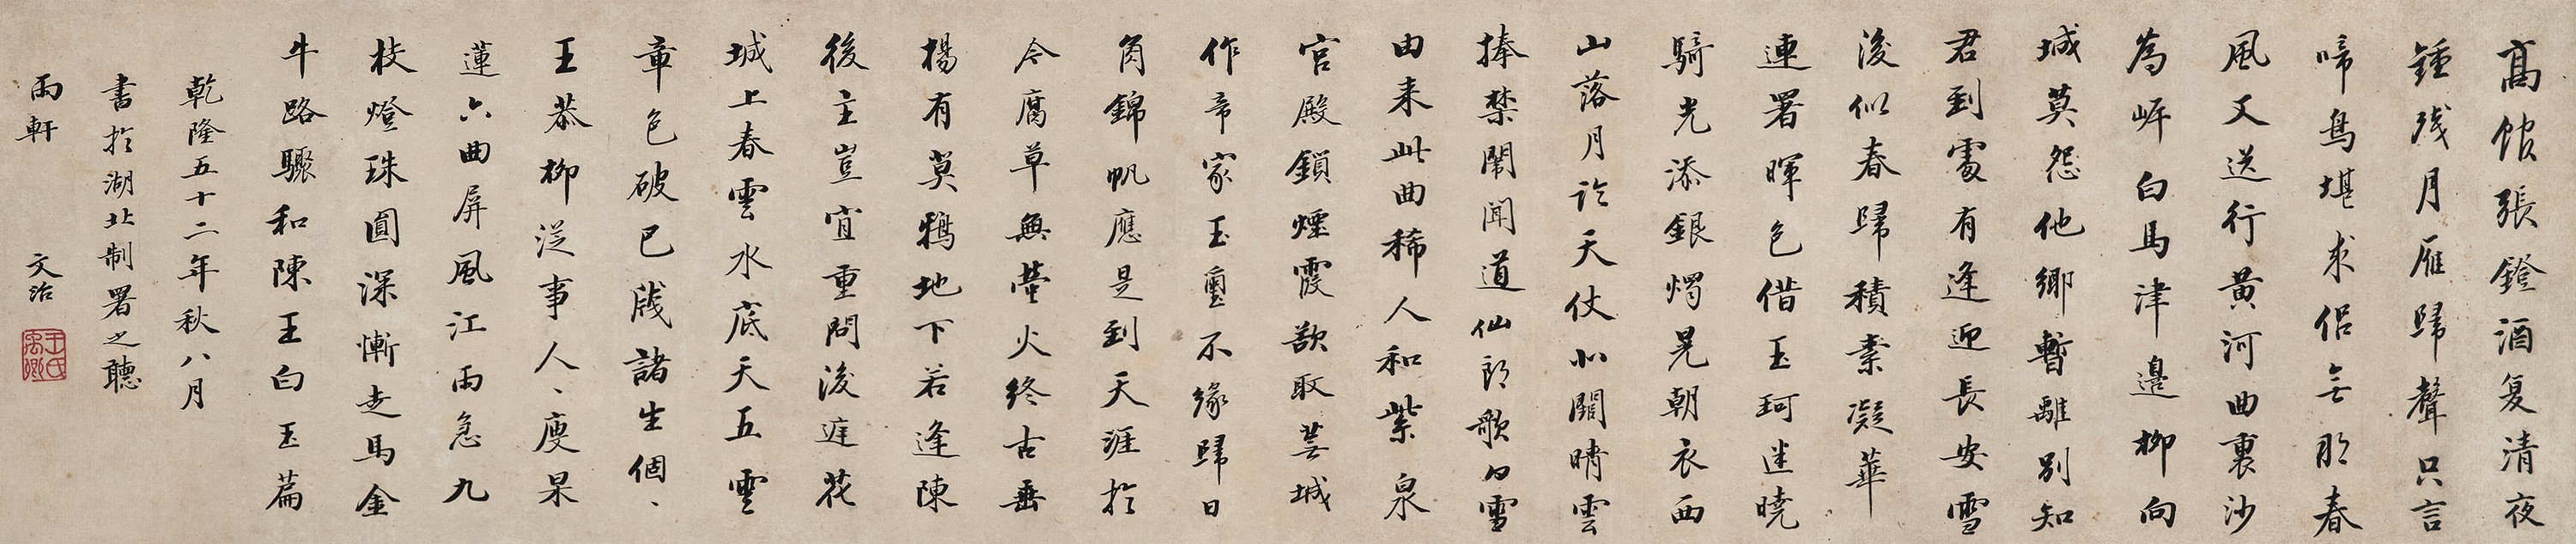 髙館張鐙酒复清夜
鍾残月雁歸聲只言
啼鳥堪求侣無那春
風又送行黄河曲裏沙
為岸白馬津邉柳向
城莫怨他鄉暫離别知
君到處有逢迎長安雪
後似春歸積素凝華
連署暉色借玉珂迷曉
騎光添銀燭晃朝衣西
山落月詥天仗北闕晴雲
捧禁闈聞道仙郎歌白雪
由来此曲稀人和紫泉
宫殿鎖煙霞欲取芜城
作帝家玉璽不緣歸日
角錦帆應是到天涯於
今腐草無螢火終古垂
楊有莫鴉地下若逢陳
後主豈宜重問後庭花
城上春雲水底天五雲
章色破巴牋諸生個、
王恭柳從事人、庾杲
蓮六曲屏風江雨急九
枝燈珠圓深慚走馬金
牛路驟和陳王白玉篇
乾隆五十二年秋八月
書於湖北制署之聽
雨軒 文治
王氏禹卿